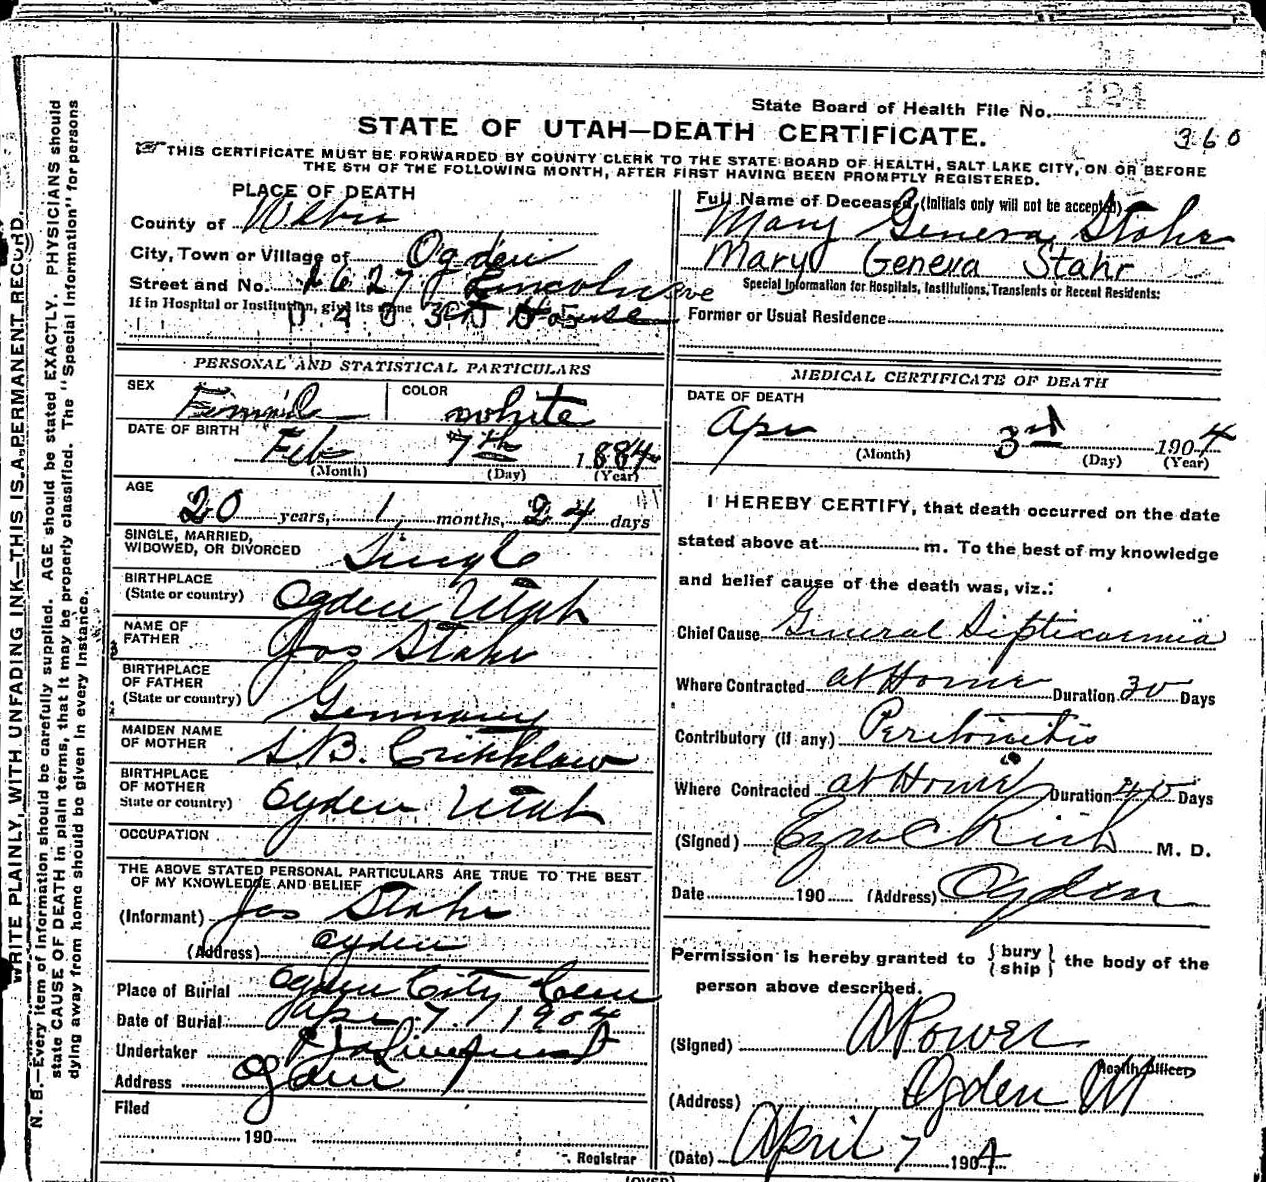 State Board of Health File No. 124
360
STATE OF UTAH—DEATH CERTIFICATE.
THIS CERTIFICATE MUST BE FORWARDED BY COUNTY CLERK TO THE STATE BOARD OF HEALTH, SALT LAKE CITY, ON OR BEFORE
THE 5TH OF THE FOLLOWING MONTH, AFTER FIRST HAVING BEEN PROMPTLY REGISTERED.
WRITE PLAINLY, WITH UNFADING INK—THIS IS A PERMANENT RECORD.
N. B.—Every item of information should be carefully supplied. AGE should be stated EXACTLY. PHYSICIANS should
state CAUSE OF DEATH in plain terms, that it may be properly classified. The "Special Information" for persons
dying away from home should be given in every instance.
PLACE OF DEATH
County of Weber
City, Town or Village of Ogden
Street and No. 2627 Lincoln ave
If in Hospital or Institution, give its name House
PERSONAL AND STATISTICAL PARTICULARS
SEX Female COLOR white
DATE OF BIRTH Feb 7th 1884
(Month) (Day) (Year)
AGE
20 years, 1 months, 24 days
SINGLE, MARRIED,
WIDOWED, OR DIVORCED Single
BIRTHPLACE
(State or country) Ogden Utah
NAME OF
FATHER Jos Stahr
BIRTHPLACE
OF FATHER
(State or country) Germany
MAIDEN NAME
OF MOTHER S. B. Critchlow
BIRTHPLACE
OF MOTHER
State or country) Ogden Utah
OCCUPATION
THE ABOVE STATED PERSONAL PARTICULARS ARE TRUE TO THE BEST
OF MY KNOWLEDGE AND BELIEF
(Informant) Jos Stahr
(Address) Ogden
Place of Burial Ogden City Cem
Date of Burial Apr 7 1904
Undertaker
Address Ogden
Filed
190
Registrar
Full Name of Deceased, (Initials only will not be accepted)
Mary Geneva Stahr
Mary Geneva Stahr
Special Information for Hospitals, Institutions, Transients or Recent Residents:
Former or Usual Residence
MEDICAL CERTIFICATE OF DEATH
DATE OF DEATH
Apr 3rd 1904
(Month) (Day) (Year)
I HEREBY CERTIFY, that death occurred on the date
stated above at m. To the best of my knowledge
and belief cause of the death was, viz.:
Chief Cause General Septicaemia
Where Contracted at Home Duration 30 Days
Contributory (if any) Peritonitis
Where Contracted at Home Duration Days
(Signed) Rich M. D.
Date 190 (Address) Ogden
Permission is hereby granted to { bury / ship } the body of the
person above described.
(Signed) A Power
Health Officer
(Address) Ogden Ut
(Date) April 7 1904
(OVER)